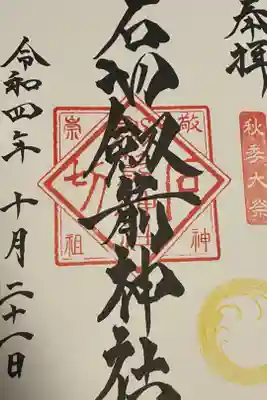 奉拝
秋季大祭
石切劔箭神社
敬神
崇祖
石切
令和四年 十月二十一日